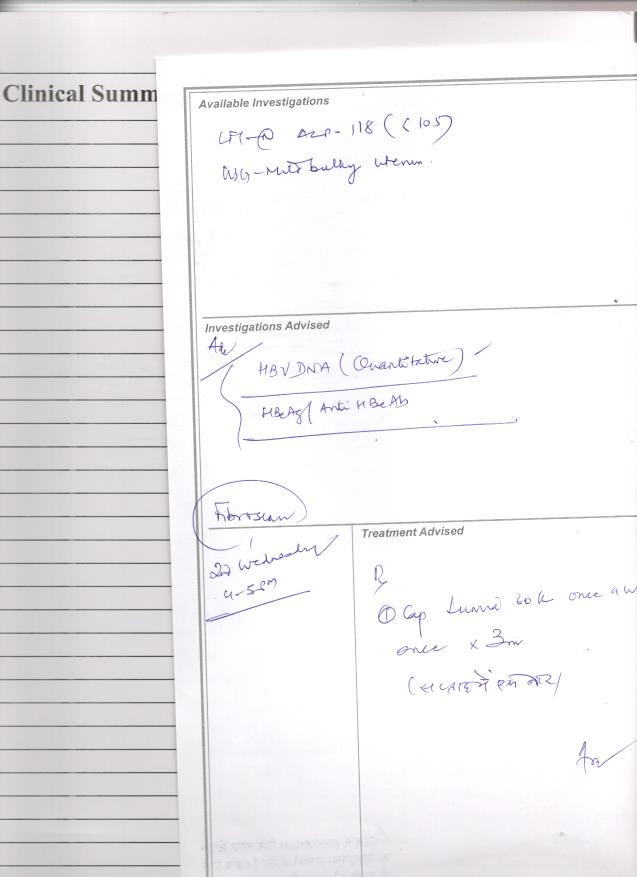 Clinical Summ
Available Investigations
LFT-(N) ALP-118 (<105)
USG-Mild bulky uterus.
Investigations Advised
Adv
HBV DNA (Quantitative)
HBeAg/Anti HBeAb
Fibroscan
Wednesday
4-5PM
Treatment Advised
Rx
① Cap 60K once a w
once x 3m
(सप्ताह में एक बार)